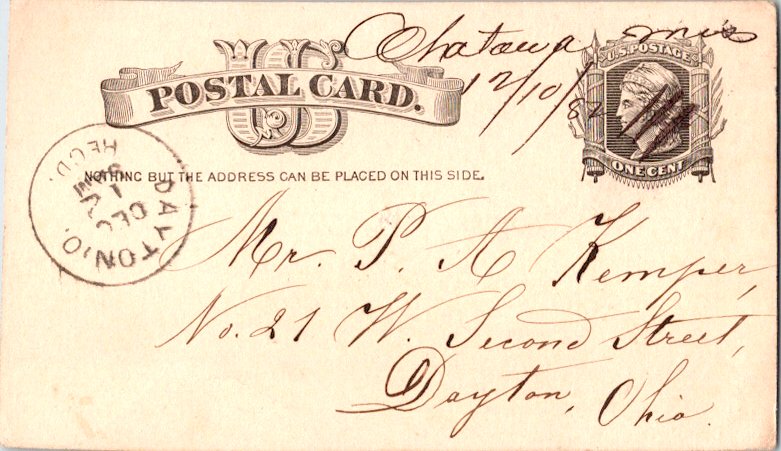 Chatawa Miss
12/10/82
U.S. POSTAGE
ONE CENT
US
POSTAL CARD.
NOTHING BUT THE ADDRESS CAN BE PLACED ON THIS SIDE.
DAYTON, O.
DEC
REC'D.
Mr. P. A Kemper,
No. 21 W. Second Street,
Dayton, Ohio.